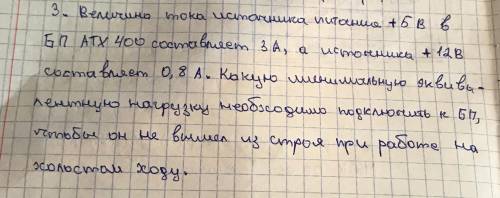 3. Величина тока источника питания +5 В в
БП ATX 400 составляет 3А, а источника +12В
составляет 0,8 А. Какую минимальную эквива-
лентную нагрузку необходимо подключить к БП,
чтобы он не вышел из строя при работе на
холостом ходу.